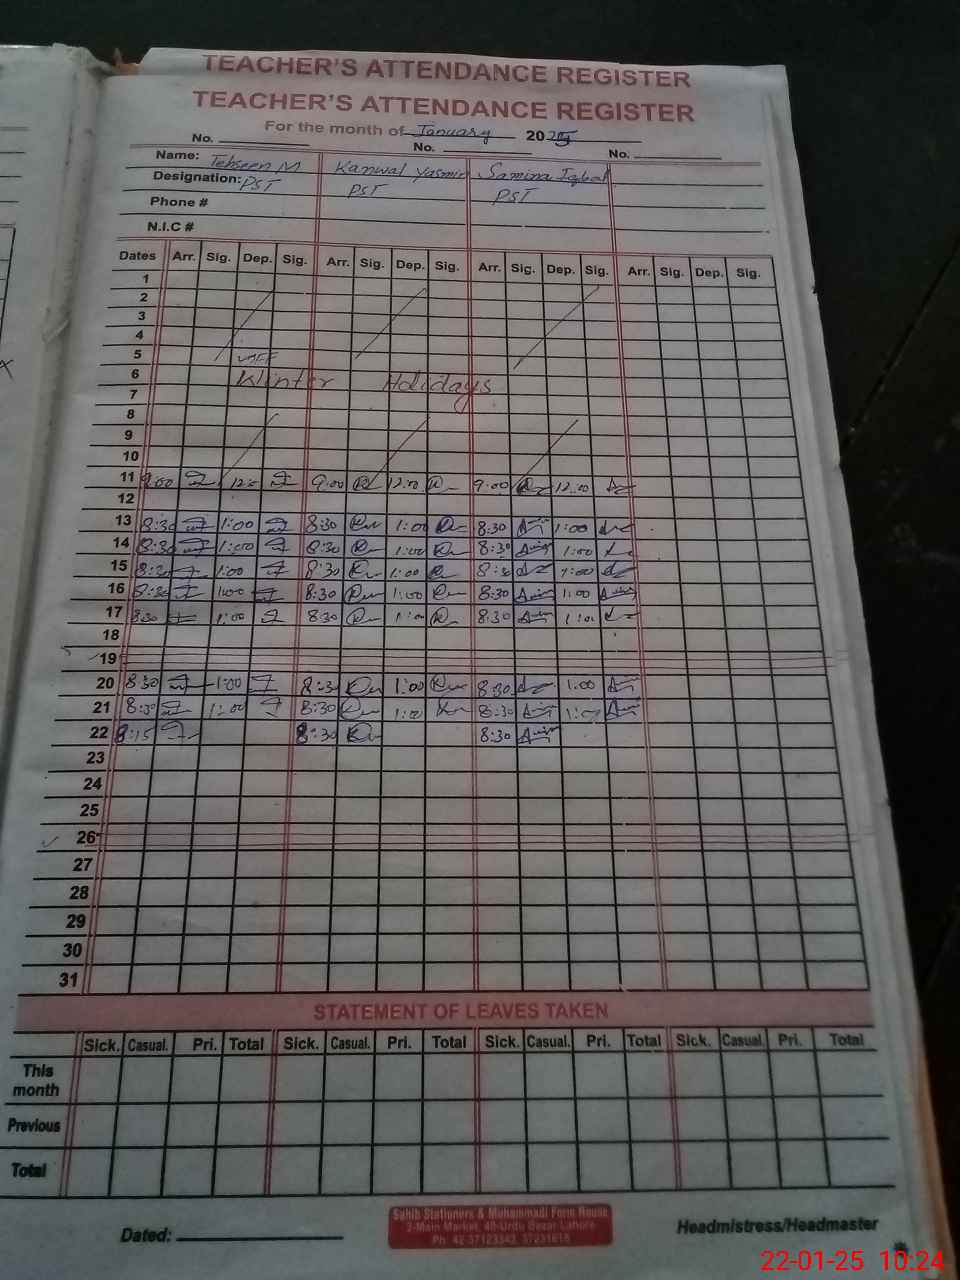 TEACHER'S ATTENDANCE REGISTER
TEACHER'S ATTENDANCE REGISTER
For the month of January 20
No. No. No.
Name: Tehseen M Kanwal Yasmin Samina Iqbal
Designation: PST PST PST
Phone #
N.I.C #
Dates Arr. Sig. Dep. Sig. Arr. Sig. Dep. Sig. Arr. Sig. Dep. Sig. Arr. Sig. Dep. Sig.
1
2
3
4
5
6 Winter Holidays
7
8
9
10
11 9:00 12:0 9:00 12:00 9:00 12:00
12
13 8:30 1:00 8:30 1:00 8:30 1:00
14 8:30 1:00 8:30 1:00 8:30 1:00
15 8:30 1:00 8:30 1:00 8:30 1:00
16 8:30 1:00 8:30 1:00 8:30 1:00
17 8:30 1:00 8:30 1:00 8:30 1:00
18
19
20 8:30 1:00 8:30 1:00 8:30 1:00
21 8:30 1:00 8:30 1:00 8:30 1:00
22 8:15 8:30 8:30
23
24
25
26
27
28
29
30
31
STATEMENT OF LEAVES TAKEN
Sick. Casual. Pri. Total Sick. Casual. Pri. Total Sick. Casual. Pri. Total Sick. Casual. Pri. Total
This
month
Previous
Total
Dated:
Sahib Stationers & Muhammadi Form House
2-Main Market, 40-Urdu Bazar Lahore
Ph: 42-37123343, 37231616
Headmistress/Headmaster
22-01-25 10:24